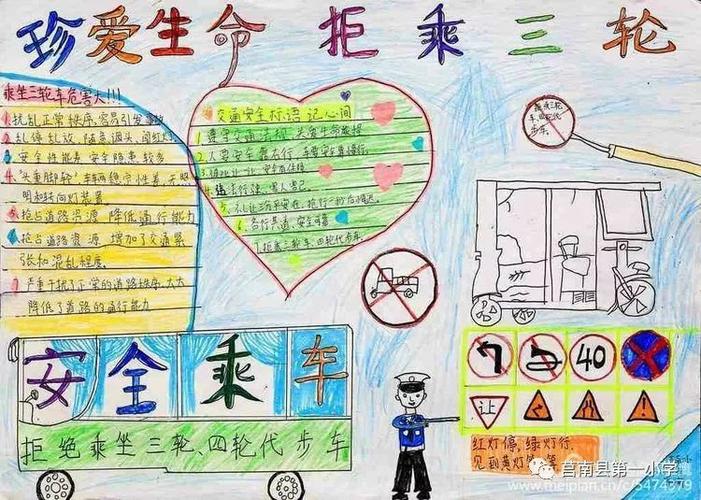 珍爱生命 拒乘三轮
乘坐三轮车危害大!!!
1、扰乱正常秩序,容易引发事故
2、乱停乱放,随意调头、闯红灯
3、安全性能差 安全隐患较多
4、"头重脚轻"车辆稳定性差,无照
明和转向灯装置
5、抢占道路资源 降低通行能力
6、抢占道路资源 增加了交通紧
张和混乱程度
7、严重干扰了正常的道路秩序,大大
降低了道路的通行能力
交通安全标语 记心间
1、遵守交通法规
2、人要安全靠右行,车要安全慢慢行
6、各行其道,安全可靠
7、拒乘三轮车、四轮代步车
拒乘三轮
车、四轮代
步车
安全乘车
拒绝乘坐三轮、四轮代步车
40
让
红灯停,绿灯行
见到黄灯
莒南县第一小学
www.meipian.cn/c/5474379